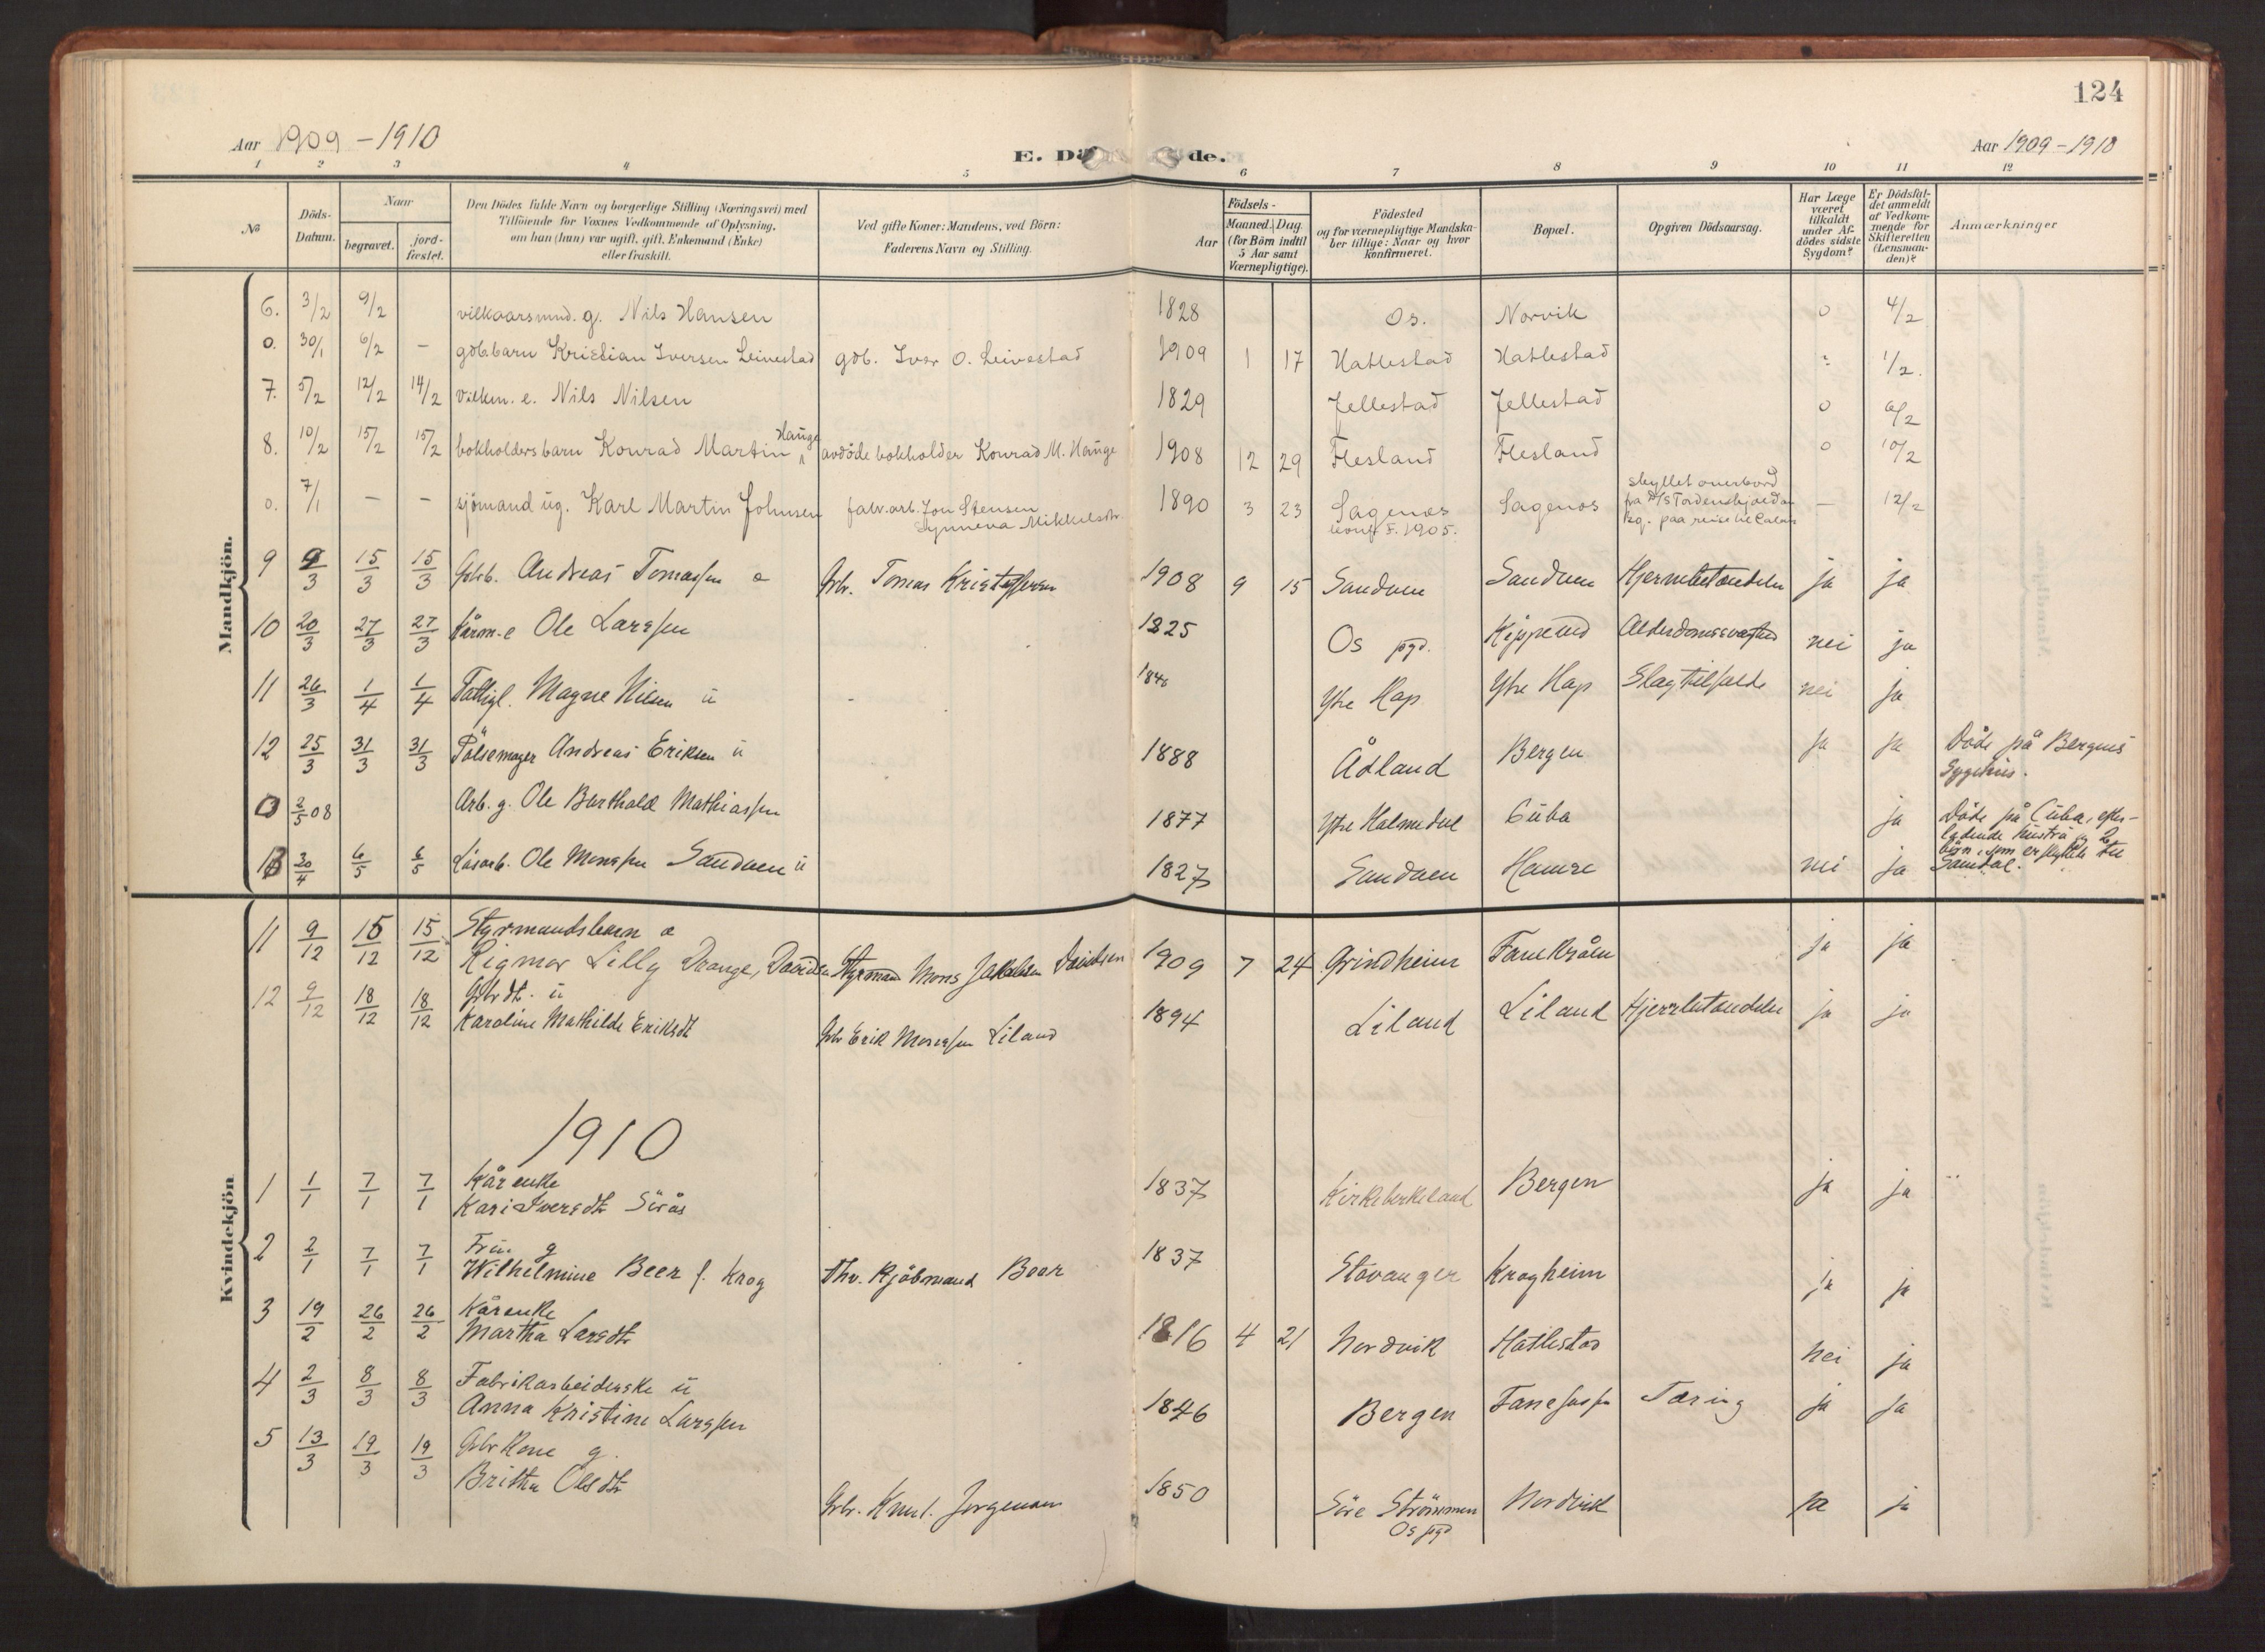 124
Aar 1909 - 1910
E. Dö de.
Aar 1909 - 1910
1 2 3 4 5 6 7 8 9 10 11 12
No
Döds-
Datum.
Naar
begravet.
jord-
fæstet.
Den Dödes fulde Navn og borgerlige Stilling (Næringsvei) med
Tilföiende for Voxnes Vedkommende af Oplysning,
om han (hun) var ugift, gift, Enkemand (Enke)
eller fraskilt.
Ved gifte Koner: Mandens, ved Börn:
Faderens Navn og Stilling.
Födsels-
Aar
Maaned. Dag.
(for Börn indtil
5 Aar samt
Værnepligtige).
Födested
og for værnepligtige Mandska-
ber tillige: Naar og hvor
konfirmeret.
Bopæl.
Opgiven Dödsaarsag.
Har Læge
været
tilkaldt
under Af-
dödes sidste
Sygdom?
Er Dödsfal-
det anmeldt
af Vedkom-
mende for
Skifteretten
(Lensman-
den)?
Anmærkninger
Mandkjön.
6. 3/2 9/2 vilkaarsmd. g. Nils Hansen 1828 Os. Norvik 0 4/2
0. 30/1 6/2 - gdb.barn Kristian Iversen Leivestad gdb. Ivar O. Leivestad 1909 1 17 Hatlestad Hatlestad 1/2.
7. 5/2 12/2 14/2 vilkm. e. Nils Nilsen 1829 Jellestad Jellestad 0 6/2
8. 10/2 15/2 15/2 bokholdersbarn Konrad Martin Hauge avdöde bokholder Konrad M. Hauge 1908 12 29 Flesland Flesland 0 10/2
0. 7/1 - - sjömand ug. Karl Martin Johnsen fabr.arb. Jon Stensen
Synneva Mikkelsdtr. 1890 3 23 Sagenos
konf. F. 1905. Sagenos skyllet overbord
fra D/S Tordenskjold av
Bg. paa reise til - 12/2
9 9/3 15/3 15/3 Gbrb. Andreas Tomassen Gbr. Tomas Kristoffersen 1908 9 15 Sandven Sandven ja ja
10 20/3 27/3 27/3 Kårm. e Ole Larssen 1825 Os pgd. nei ja
11 26/3 1/4 1/4 Fattigl. Magne Nilsen ü - Ytre Hop Ytre Hop Slagtilfælde nei ja
12 25/3 31/3 31/3 Pölsemager Andreas Eriksen ü 1888 Ådland Bergen ja ja Döde på Bergens
Sygehus.
0 2/5 08 Arb. g. Ole Berthold Mathiassen 1877 Ytre Halmedal Cuba ja Döde på Cuba, efter-
ladende hustru og 2
börn, som er flyttede til
Samdal.
13 30/4 6/5 6/5 Lösarb. Ole Monssen Sandven ü 1827 Sandven Hamre nei ja
Kvindekjön
11 9/12 15/12 15/12 Styrmandsbarn
Rigmor Lilly Drange, Davidsen Styrmand Mons Jakobsen Davidsen 1909 7 24 Grindheim Fanekråen ja ja
12 9/12 18/12 18/12 Gbrdt. ü
Karoline Mathilde Eriksdt Gbr Erik Monssen Liland 1894 Liland Liland ja ja
1910
1 1/1 7/1 7/1 Kårenke
Kari Iversdtr Sörås 1837 Kirkebirkeland Bergen ja ja
2 2/1 7/1 7/1 Frü g
Wilhelmine Beer f. Krog Kjöbmand Beer 1837 Stavanger Krogheim ja ja
3 19/2 26/2 26/2 Kårenke
Martha Larsdtr 1816 4 21 Nordvik Hatlestad nei ja
4 2/3 8/3 8/3 Fabrikarbeiderske ü
Anna Kristine Larssen 1846 Bergen Tæring ja ja
5 13/3 19/3 19/3 Gbrkone g.
Britha Olsdtr Gbr. Knut Jorgensen 1850 Söre Strömmen
Os pgd Nordvik ja ja